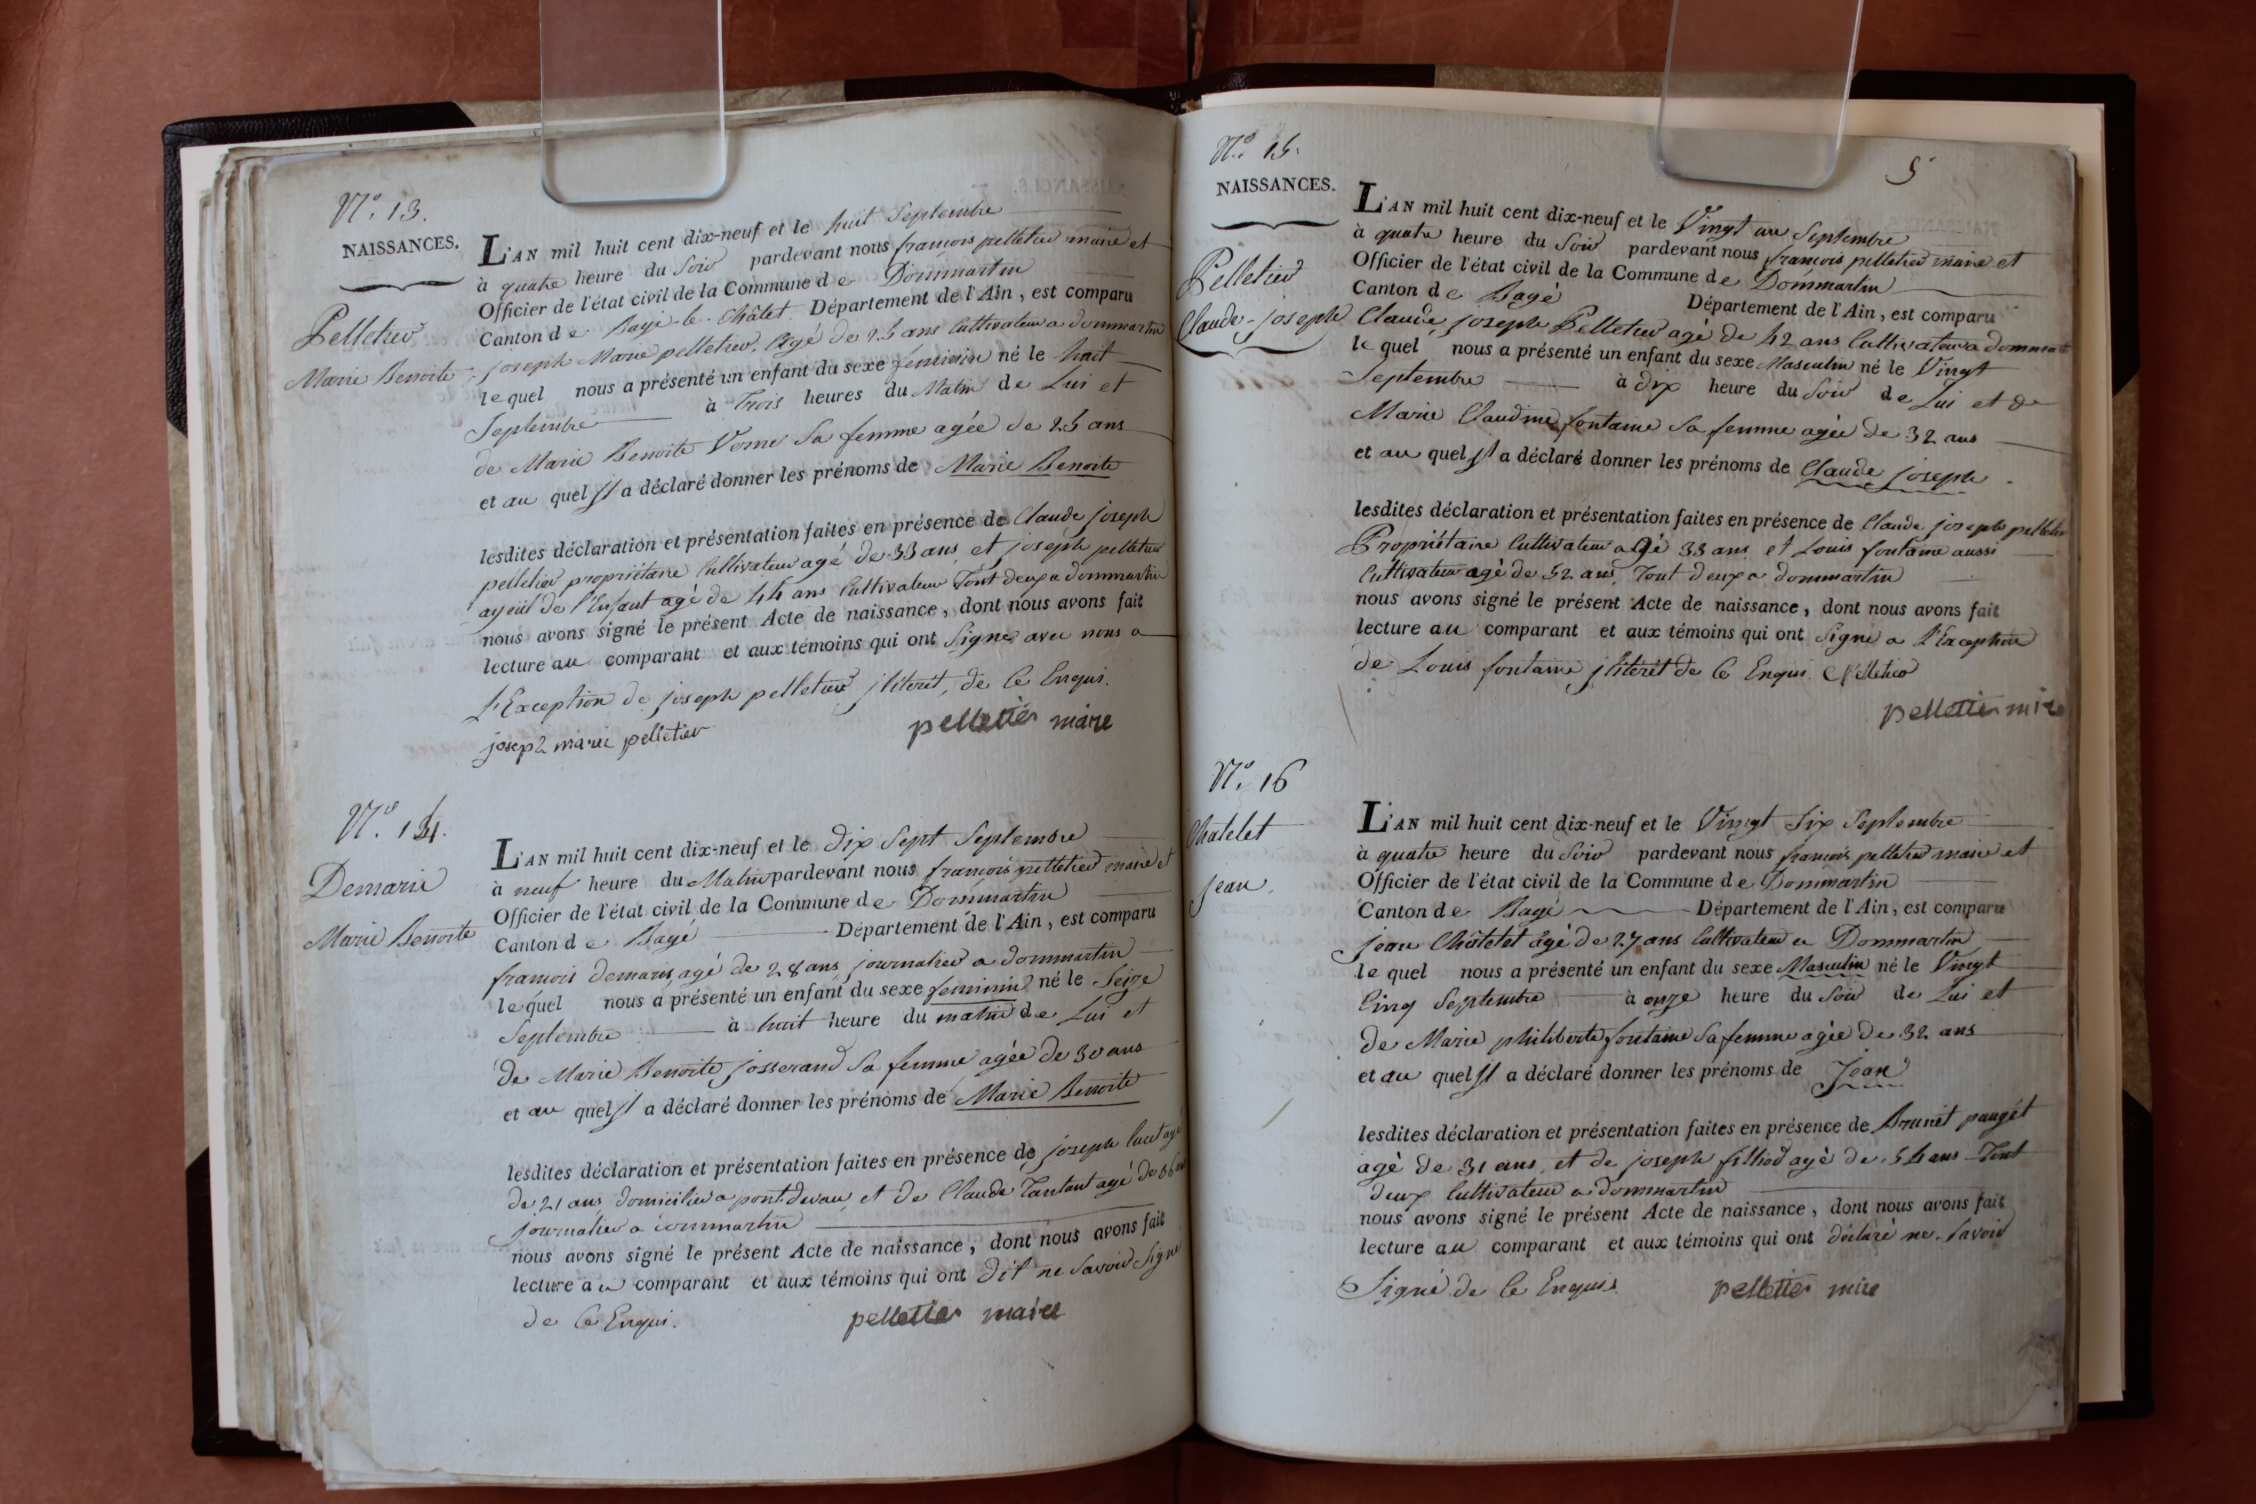 N.o 13.
NAISSANCES.
Pelletier
Marie Benoite
L'AN mil huit cent dix-neuf et le huit Septembre
à quatre heure du Soir pardevant nous françois pelletier maire et
Officier de l'état civil de la Commune de Dommartin
Canton de Bagé-le-Châtel Département de l'Ain, est comparu
joseph Marie pelletier. Agé de 25 ans Cultivateur a dommartin
lequel nous a présenté un enfant du sexe feminin né le huit
Septembre à Trois heures du Matin de Lui et
de Marie Benoite Verne Sa femme agée de 25 ans
et au quel Il a déclaré donner les prénoms de Marie Benoite
lesdites déclaration et présentation faites en présence de Claude joseph
pelletier propriétaire Cultivateur agé de 33 ans et joseph pelletier
ayeül de l'Enfant agé de 44 ans Cultivateur Tout deux a dommartin
nous avons signé le présent Acte de naissance, dont nous avons fait
lecture au comparant et aux témoins qui ont Signé avec nous a
l'Exception de joseph pelletier jlitéret, de Ce Enqui.
joseph marie pelletier pelletier maire
N.o 14.
Demarie
Marie Benoite
L'AN mil huit cent dix-neuf et le dix Sept Septembre
à neuf heure du Matin pardevant nous françois pelletier maire et
Officier de l'état civil de la Commune de Dommartin
Canton de Bagé Département de l'Ain, est comparu
francois demarie agé de 28 ans journalier a dommartin
lequel nous a présenté un enfant du sexe feminin né le Seize
Septembre à huit heure du matin de Lui et
de Marie Benoite josserand Sa femme agée de 30 ans
et au quel Il a déclaré donner les prénoms de Marie Benoite
lesdites déclaration et présentation faites en présence de joseph lucet agé
de 21 ans domicilier a pont devau, et de Claude Tantout agé de 36 ans
journalier a dommartin
nous avons signé le présent Acte de naissance, dont nous avons fait
lecture au comparant et aux témoins qui ont dit ne Savoir Signe
de Ce Enqui. pelletier maire
N.o 15.
NAISSANCES.
Pelletier
Claude-joseph
5
L'AN mil huit cent dix-neuf et le Vingt un Septembre
à quatre heure du Soir pardevant nous françois pelletier maire et
Officier de l'état civil de la Commune de Dommartin
Canton de Bagé Département de l'Ain, est comparu
Claude joseph Pelletier agé de 42 ans Cultivateur a dommart
lequel nous a présenté un enfant du sexe Masculin né le Vingt
Septembre à dix heure du Soir de Lui et de
Marie Claudine fontaine Sa femme agée de 32 ans
et au quel Il a déclaré donner les prénoms de Claude joseph
lesdites déclaration et présentation faites en présence de Claude joseph pelletier
Propriétaire Cultivateur agé 33 ans et Louis fontaine aussi
Cultivateur agé de 52 ans, Tout deux a dommartin
nous avons signé le présent Acte de naissance, dont nous avons fait
lecture au comparant et aux témoins qui ont Signé a l'Exception
de Louis fontaine jlitérét de Ce Enqui CPelletier
pelletier mire
N.o 16
Chatelet
jean
L'AN mil huit cent dix-neuf et le Vingt Six Septembre
à quatre heure du Soir pardevant nous françois pelletier maire et
Officier de l'état civil de la Commune de Dommartin
Canton de Bagé Département de l'Ain, est comparu
jean Châtelet agé de 27 ans Cultivateur a Dommartin
lequel nous a présenté un enfant du sexe Masculin né le Vingt
Cinq Septembre à onze heure du Soir de Lui et
de Marie philiberte fontaine Sa femme agée de 32 ans
et au quel Il a déclaré donner les prénoms de Jean
lesdites déclaration et présentation faites en présence de Brunet paugét
agé de 31 ans, et de joseph filliod agé de 54 ans Tout
deux Cultivateur a dommartin
nous avons signé le présent Acte de naissance, dont nous avons fait
lecture au comparant et aux témoins qui ont déclaré ne Savoir
Signé de Ce Enquis. pelletier mire